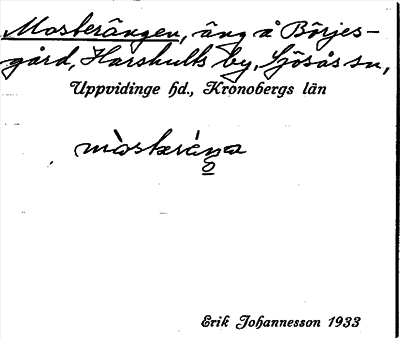 Mosterängen, äng å Börjes-
gård, Harshults by, Sjösås sn,
Uppvidinge hd., Kronobergs län
Erik Johannesson 1933